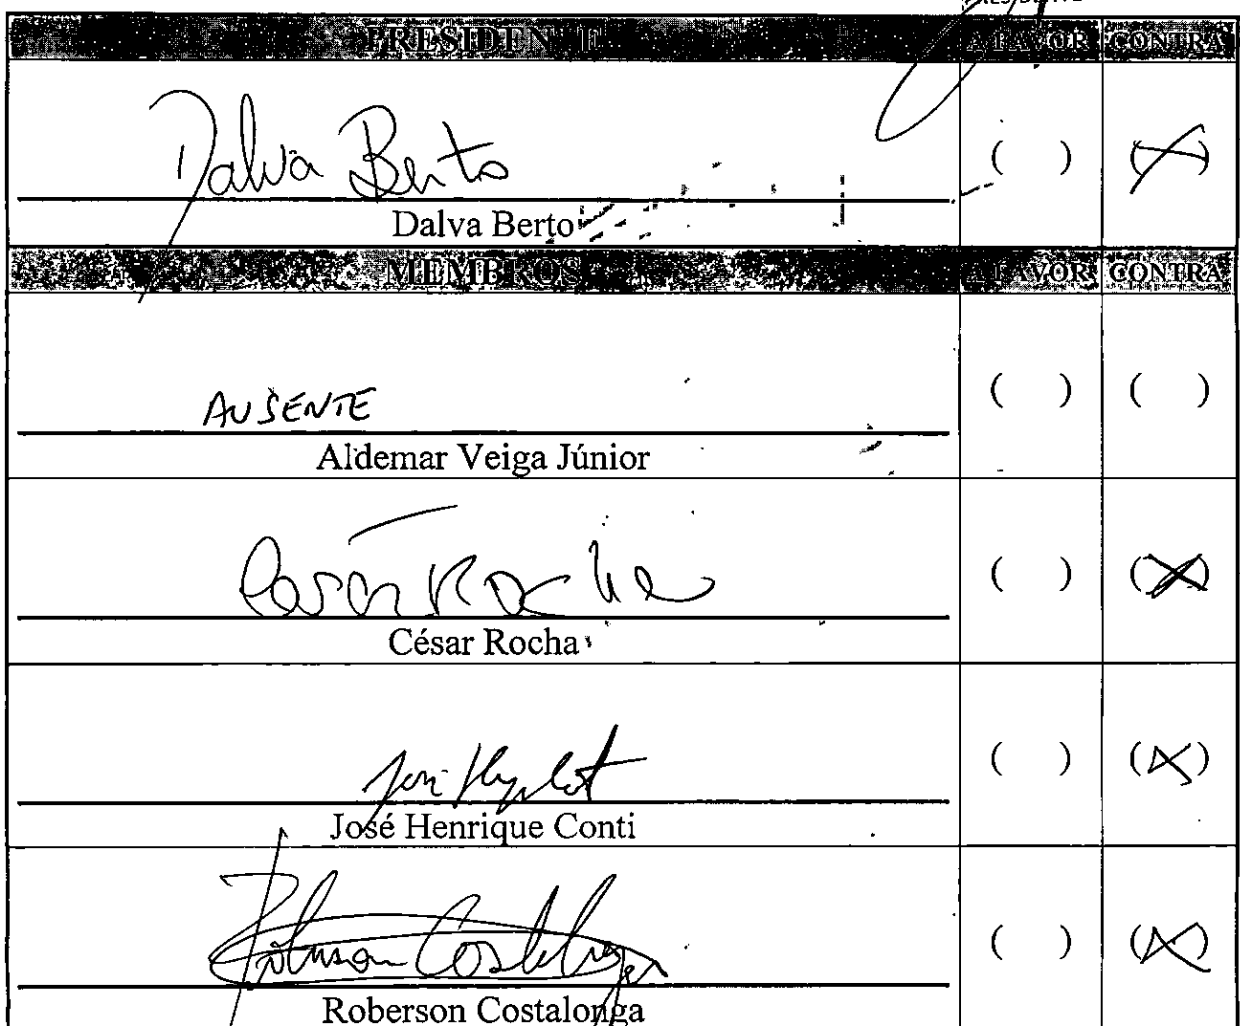 PRESIDENTE A FAVOR CONTRA
Dalva Berto ( ) (X)
Dalva Berto
MEMBROS A FAVOR CONTRA
AUSENTE ( ) ( )
Aldemar Veiga Júnior
César Rocha ( ) (X)
César Rocha
( ) (X)
José Henrique Conti
Roberson Costalonga ( ) (X)
Roberson Costalonga